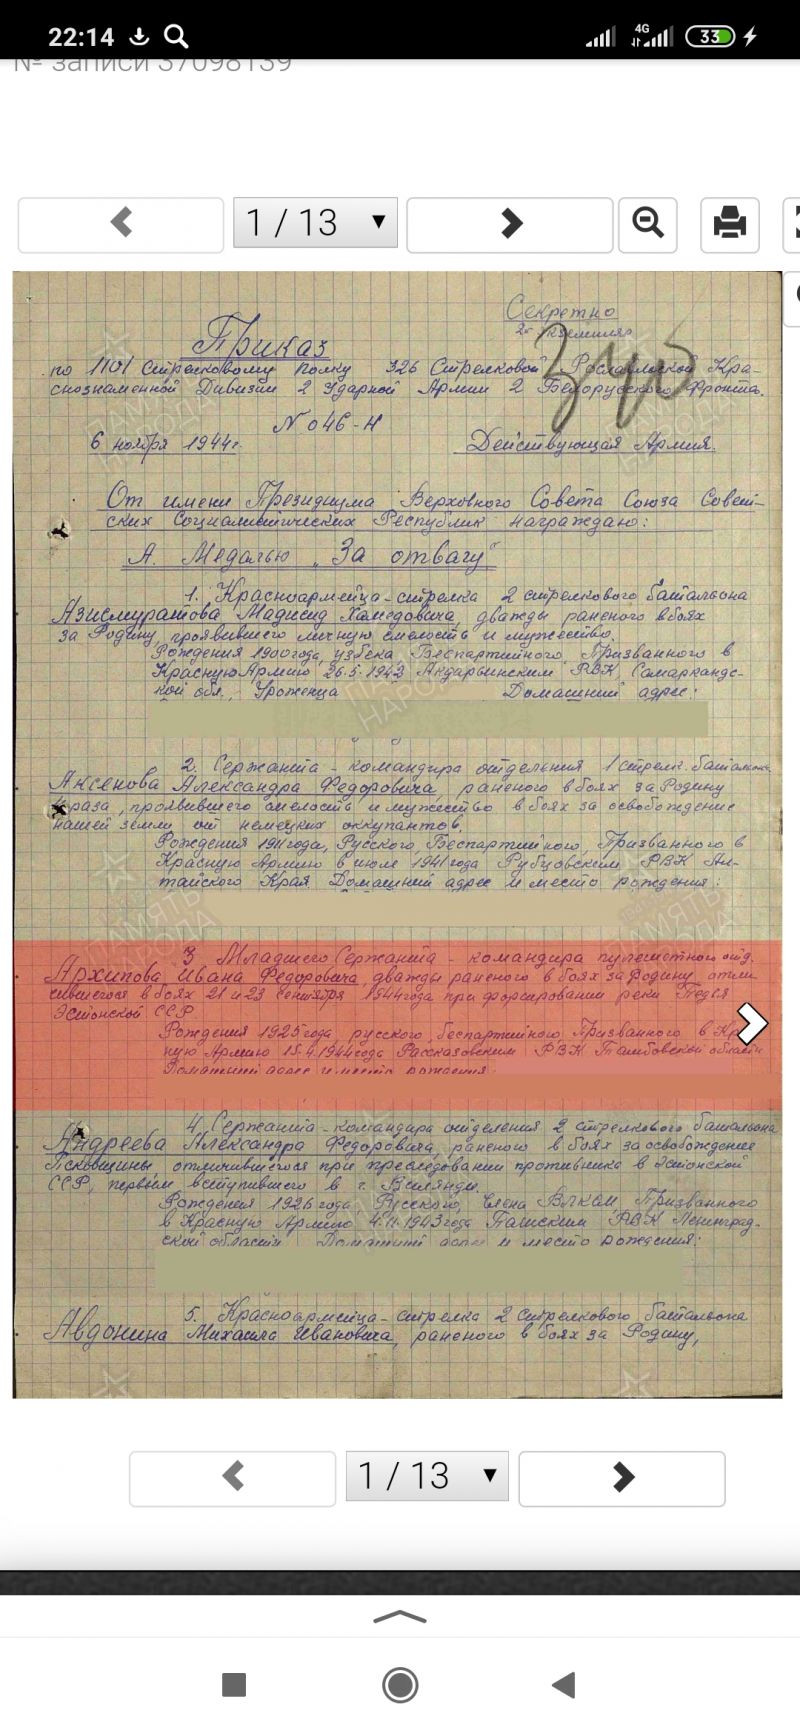 22:14
4G
33
№ записи 37098139
1 / 13
Секретно
2й экземпляр
Приказ
по 1101 Стрелковому полку 326 Стрелковой Рославльской Кра-
снознаменной Дивизии 2 Ударной Армии 2 Белорусского Фронта.
№ 046-Н
6 ноября 1944г. Действующая Армия.
От имени Президиума Верховного Совета Союза Совет-
ских Социалистических Республик награждаю:
А. Медалью „За отвагу"
1. Красноармейца-стрелка 2 стрелкового батальона
Азисмуратова Мадисид Хамедовича, дважды раненого в боях
за Родину, проявившего личную смелость и мужество.
Рождения 1900 года, узбека, Беспартийного, Призванного в
Красную Армию 26.5.1942 Акдарьинским РВК, Самаркандс-
кой обл., Уроженца Домашний адрес:
2. Сержанта - командира отделения 1 стрелк. батальона
Аксенова Александра Федоровича, раненого в боях за Родину
раза, проявившего смелость и мужество в боях за освобождение
нашей земли от немецких оккупантов.
Рождения 1911 года, Русского, Беспартийного, Призванного в
Красную Армию в июле 1941 года Рубцовским РВК Ал-
тайского Края Домашний адрес и место рождения:
3 Младшего Сержанта - командира пулеметного отд.
Архипова Ивана Федоровича, дважды раненого в боях за Родину, отли-
чившегося в боях 21 и 23 Сентября 1944 года при форсировании реки Педья
Эстонской ССР.
Рождения 1925 года, русского, беспартийного, Призванного в Крас-
ную Армию 15.4.1944 года Рассказовским РВК Тамбовской области
Домашний адрес и место рождения:
4. Сержанта - командира отделения 2 стрелкового батальона
Андреева Александра Федоровича, раненого в боях за освобождение
Псковщины, отличившегося при преследовании противника в Эстонской
ССР, первым вступившего в г. Вилянди.
Рождения 1926 года Русского, члена ВЛКСМ, Призванного
в Красную Армию 4.11.1943 года Пашским РВК Ленинград-
ской области Домашний адрес и место рождения:
5. Красноармейца-стрелка 2 стрелкового батальона
Авдонина Михаила Ивановича, раненого в боях за Родину,
ПАМЯТЬ НАРОДА
1 / 13